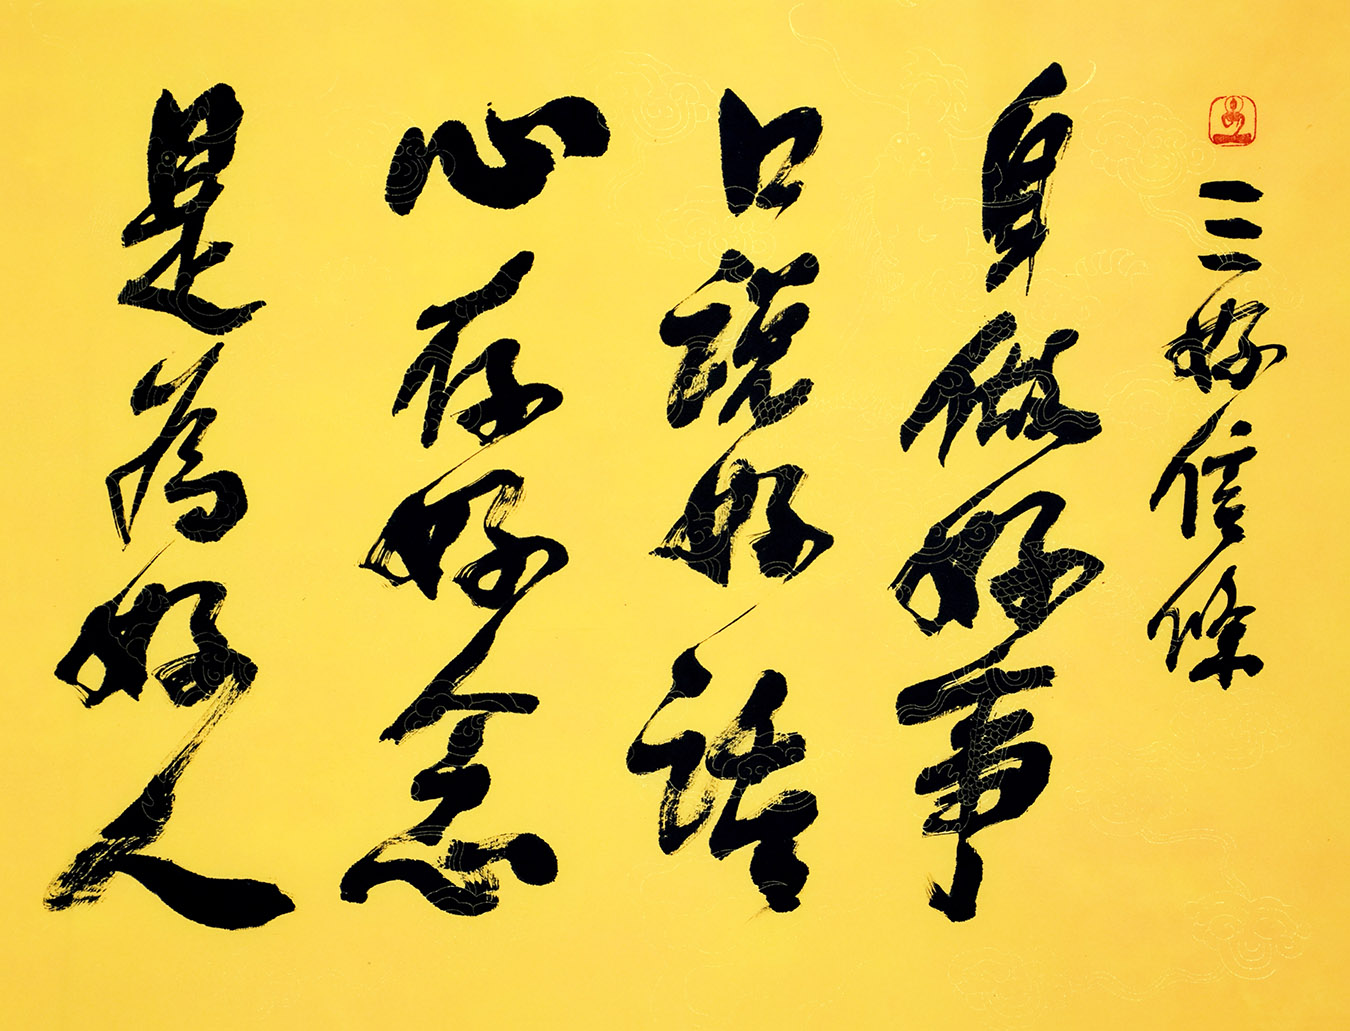 三好信條
身做好事
口說好話
心存好念
是為好人